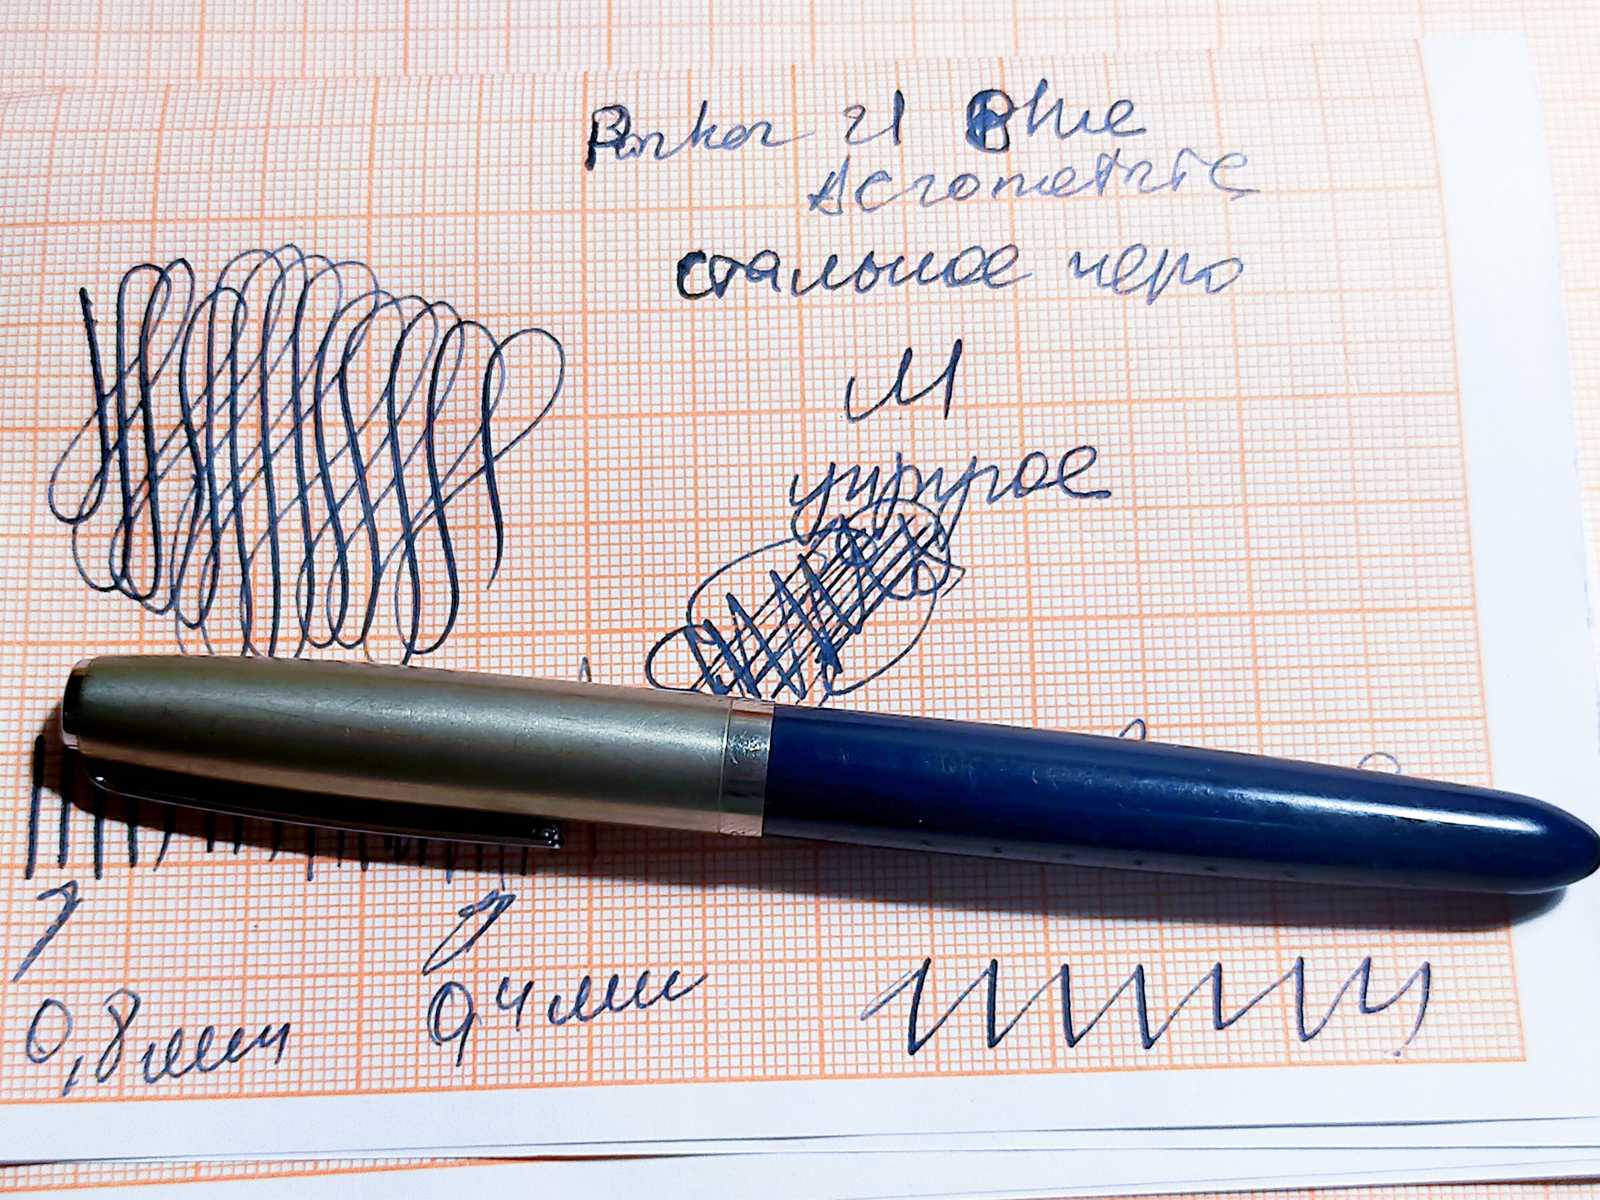 Parker 21 Blue
Aerometric
стальное перо
М
упругое
0,8 мм
0,4 мм